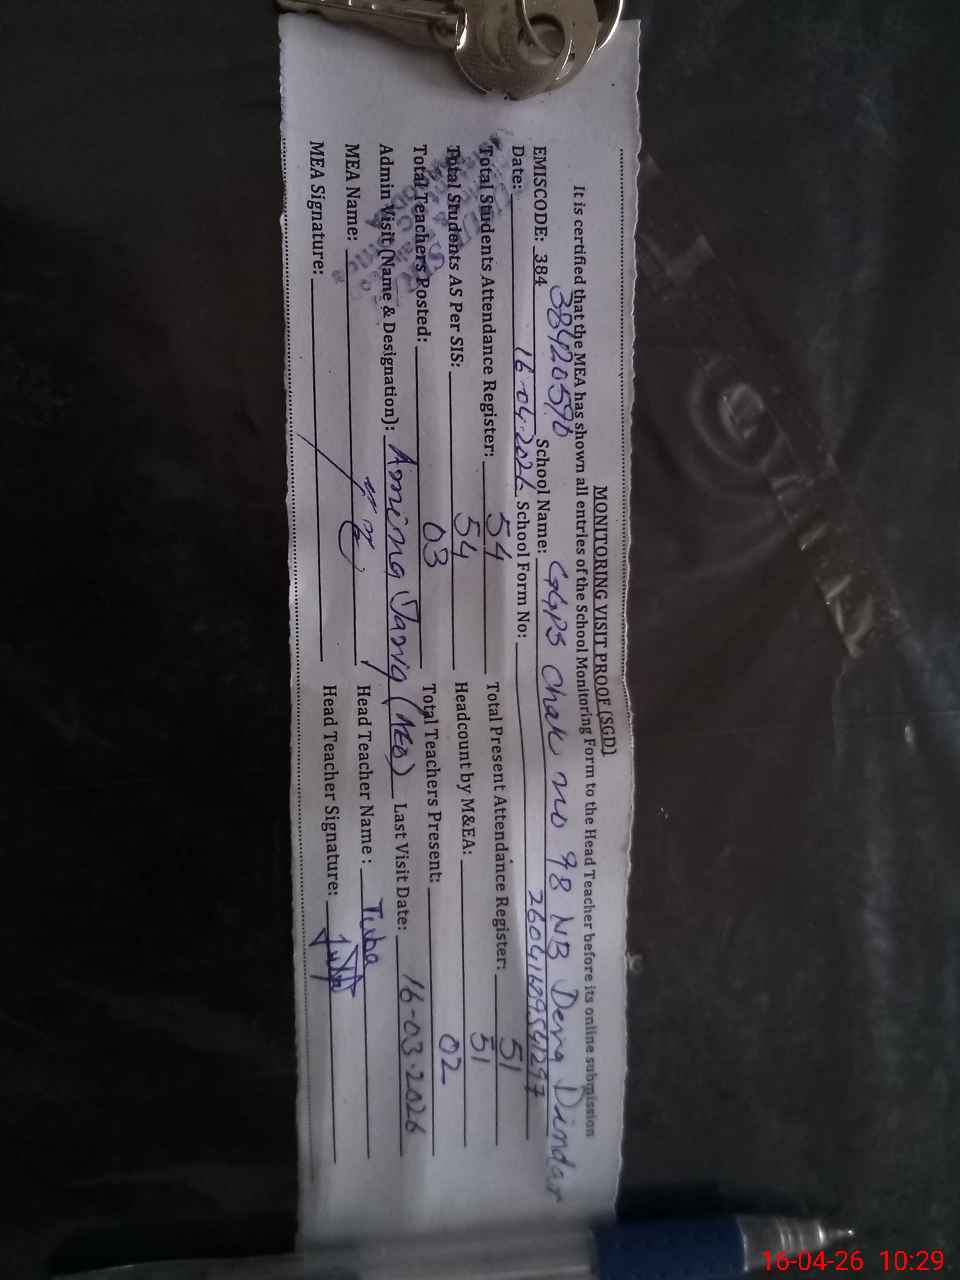 MONITORING VISIT PROOF (SGD)
It is certified that the MEA has shown all entries of the School Monitoring Form to the Head Teacher before its online submission
EMISCODE: 384 38420590 School Name: GGPS Chak no 98 NB Dera Dindar
Date: 16-04-2026 School Form No:
Total Students Attendance Register: 54 Total Present Attendance Register: 51
Total Students AS Per SIS: 54 Headcount by M&EA: 51
Total Teachers Posted: 03 Total Teachers Present: 02
Admin Visit (Name & Designation): Amina Tariq (AEO) Last Visit Date: 16-03-2026
MEA Name: Head Teacher Name : Tuba
MEA Signature: Head Teacher Signature: Tuba
16-04-26 10:29